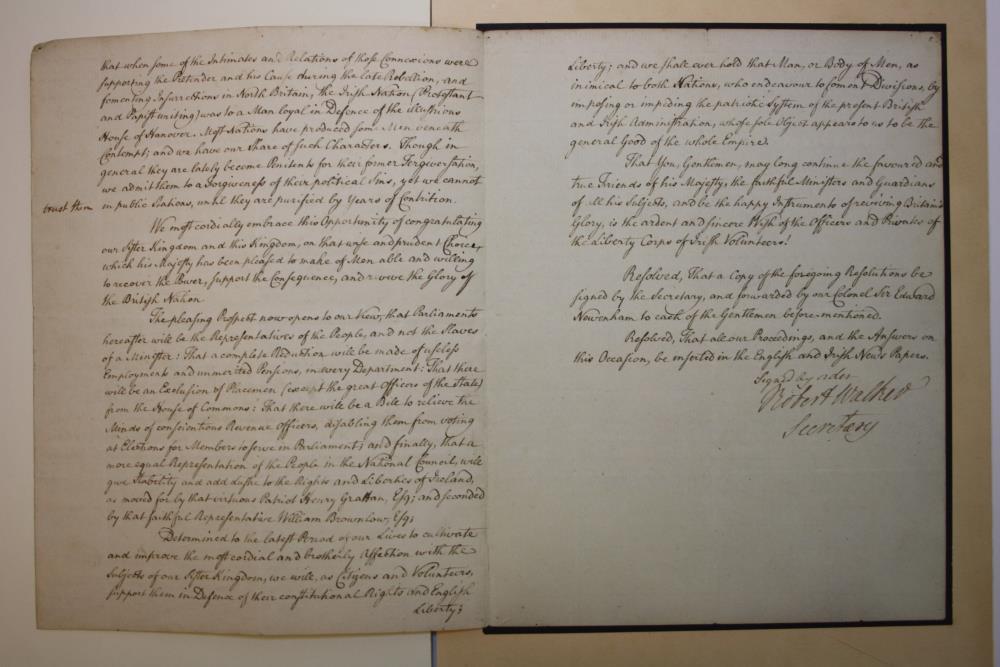 that when some of the Intimates and Relations of those Connexions were
supporting the Pretender and his Cause during the late Rebellion, and
fomenting Insurrections in North Britain, the Irish Nation (Protestant
and Papist uniting) was to a Man loyal in Defence of the illustrious
House of Hanover. Most Nations have produced some Men beneath
Contempt; and we have our Share of such Characters. Though in
general they are lately become Penitents for their former
we admit them to a Forgiveness of their political Sins, yet we cannot
trust them in public Stations, until they are purified by Years of Contrition.
We most cordially embrace this Opportunity of congratulating
our Sister Kingdom and this Kingdom, on that wise and prudent Choice,
which his Majesty has been pleased to make of Men able and willing
to recover the Power, support the Consequence, and revive the Glory of
the British Nation.
The pleasing Prospect now opens to our View, that Parliaments
hereafter will be the Representatives of the People, and not the Slaves
of a Minister: That a complete Reduction will be made of useless
Employments and unmerited Pensions, in every Department: That there
will be an Exclusion of Placemen (except the great Officers of the State)
from the House of Commons: That there will be a Bill to relieve the
Minds of conscientious Revenue Officers, disabling them from voting
at Elections for Members to serve in Parliament; and finally, that a
more equal Representation of the People in the National Council, will
give Stability and add Lustre to the Rights and Liberties of Ireland,
as moved for by that virtuous Patriot Henry Grattan, Esq; and seconded
by that faithful Representative William Brownlow, Esq;
Determined to the latest Period of our Lives to cultivate
and improve the most cordial and brotherly Affection with the
Subjects of our Sister Kingdom, we will, as Citizens and Volunteers,
support them in Defence of their constitutional Rights and English
Liberty;
Liberty; and we shall ever hold that Man, or Body of Men, as
inimical to both Nations, who endeavour to foment Divisions, by
imposing or impeding the patriotic System of the present British
and Irish Administration, whose sole Object appears to us to be the
general Good of the whole Empire.
That You, Gentlemen, may long continue the favoured and
true Friends of his Majesty, the faithful Ministers and Guardians
of all his Subjects, and be the happy Instruments of reviving Britain's
Glory, is the ardent and sincere Wish of the Officers and Privates of
the Liberty Corps of Irish Volunteers!
Resolved, That a Copy of the foregoing Resolutions be
signed by the Secretary, and forwarded by our Colonel Sir Edward
Newenham to each of the Gentlemen before-mentioned.
Resolved, That all our Proceedings, and the Answers on
this Occasion, be inserted in the English and Irish News Papers.
Signed by order
Robert Walker
Secretary